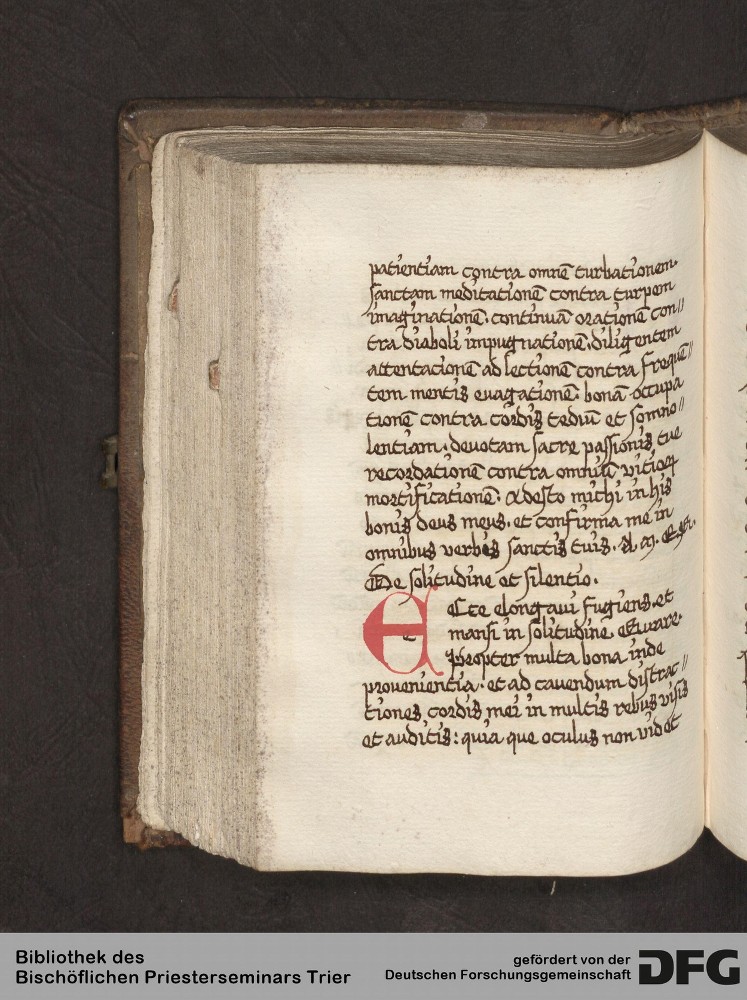 patientiam contra omnē turbationem.
sanctam meditationē contra turpem
imaginationē. continuā orationē con//
tra diaboli impugnationē. diligentem
attentacionē ad lectionē contra frequē//
tem mentis euagationē. bonā occupa
tionē contra cordis tediū et somno//
lentiam. deuotam sacre passionis tue
recordationē contra omniū vitioꝝ
mortificationē. Adesto michi in his
bonis deus meus. et confirma me in
omnibus verbis sanctis tuis. A. M.
De solitudine et silentio.
ECce elongaui fugiens. et
mansi in solitudine. Quare.
Propter multa bona inde
prouenientia. et ad cauendum distrac//
tiones cordis mei in multis rebus visis
et auditis: quia que oculus non videt
Bibliothek des
Bischöflichen Priesterseminars Trier
gefördert von der
Deutschen Forschungsgemeinschaft DFG